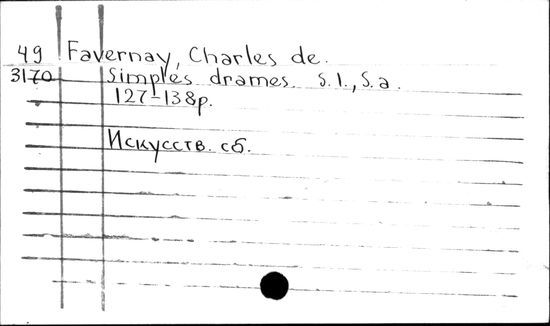 49 Favernay, Charles de.
3170 Simples drames. S.l., S.a.
127-138p.
Искусств. сб.